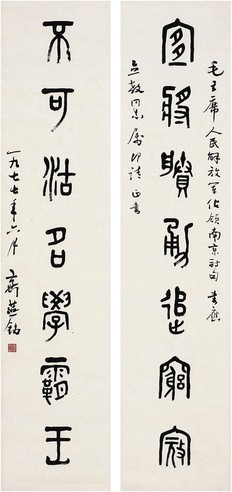 毛主席人民解放軍佔領南京詩句 書應
宜將賸勇追窮寇
同志屬即請正
不可沽名學霸王
一九七七年六月 齊燕銘